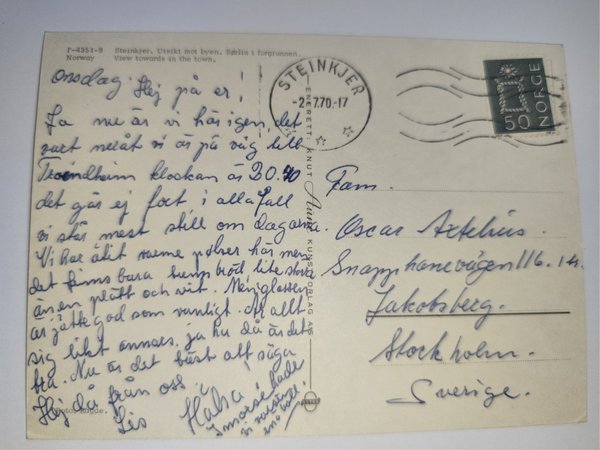 P-4353-9 Steinkjer. Utsikt mot byen. Sørlia i forgrunnen.
Norway View towards in the town.
Onsdag. Hej på er!
Ja nu är vi här igen, det
vart
vi är på väg till
Trondheim klockan är 20.40
det går ej fort i alla fall
vi står mest still om dagarna.
Vi har ätit varme pølser här men
det finns bara bröd, lite större
än en plätt och vit. Men glassen
är jättegod som vanligt. Är allt
sig likt annars. ja hu då är det
bra. Nu är det bäst att säga
Hej då från oss
Lis
Hälsa!
I morse hade
vi
STEINKJER
-2.7.70.-17
NORGE
50
ENERETT: KNUT Aune KUNSTFORLAG AS
Fam.
Oscar Axtelius.
Snapphanevägen 116.
Jakobsberg.
Stockholm.
Sverige.